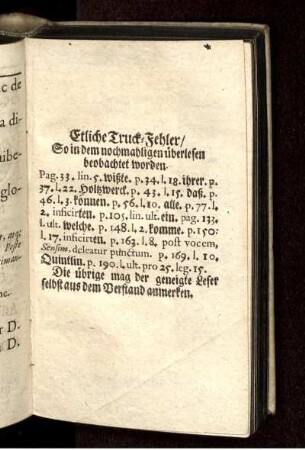 c de
a di-
uibe-
glo-
, aeqꝫ
Peste
iman-
ne.
r D.
D.
Etliche Truck-Fehler/
So in dem nochmahligen überlesen
beobachtet worden.
Pag. 33. lin. 5. wißte. p. 34. l. 18. ihrer. p.
37. l. 22. Holtzwerck. p. 43. l. 15. daß. p.
46. l. 3. können. p. 56. l. 10. alle. p. 77. l.
2. inficirten. p. 105. lin. ult. ein. pag. 133.
l. ult. welche. p. 148. l. 2. komme. p. 150.
l. 17. inficirten. p. 163. l. 8. post vocem,
Sensim. deleatur punctum. p. 169. l. 10.
Quintlin. p. 190. l. ult. pro 25. leg. 15.
Die übrige mag der geneigte Leser
selbst aus dem Verstand anmercken.